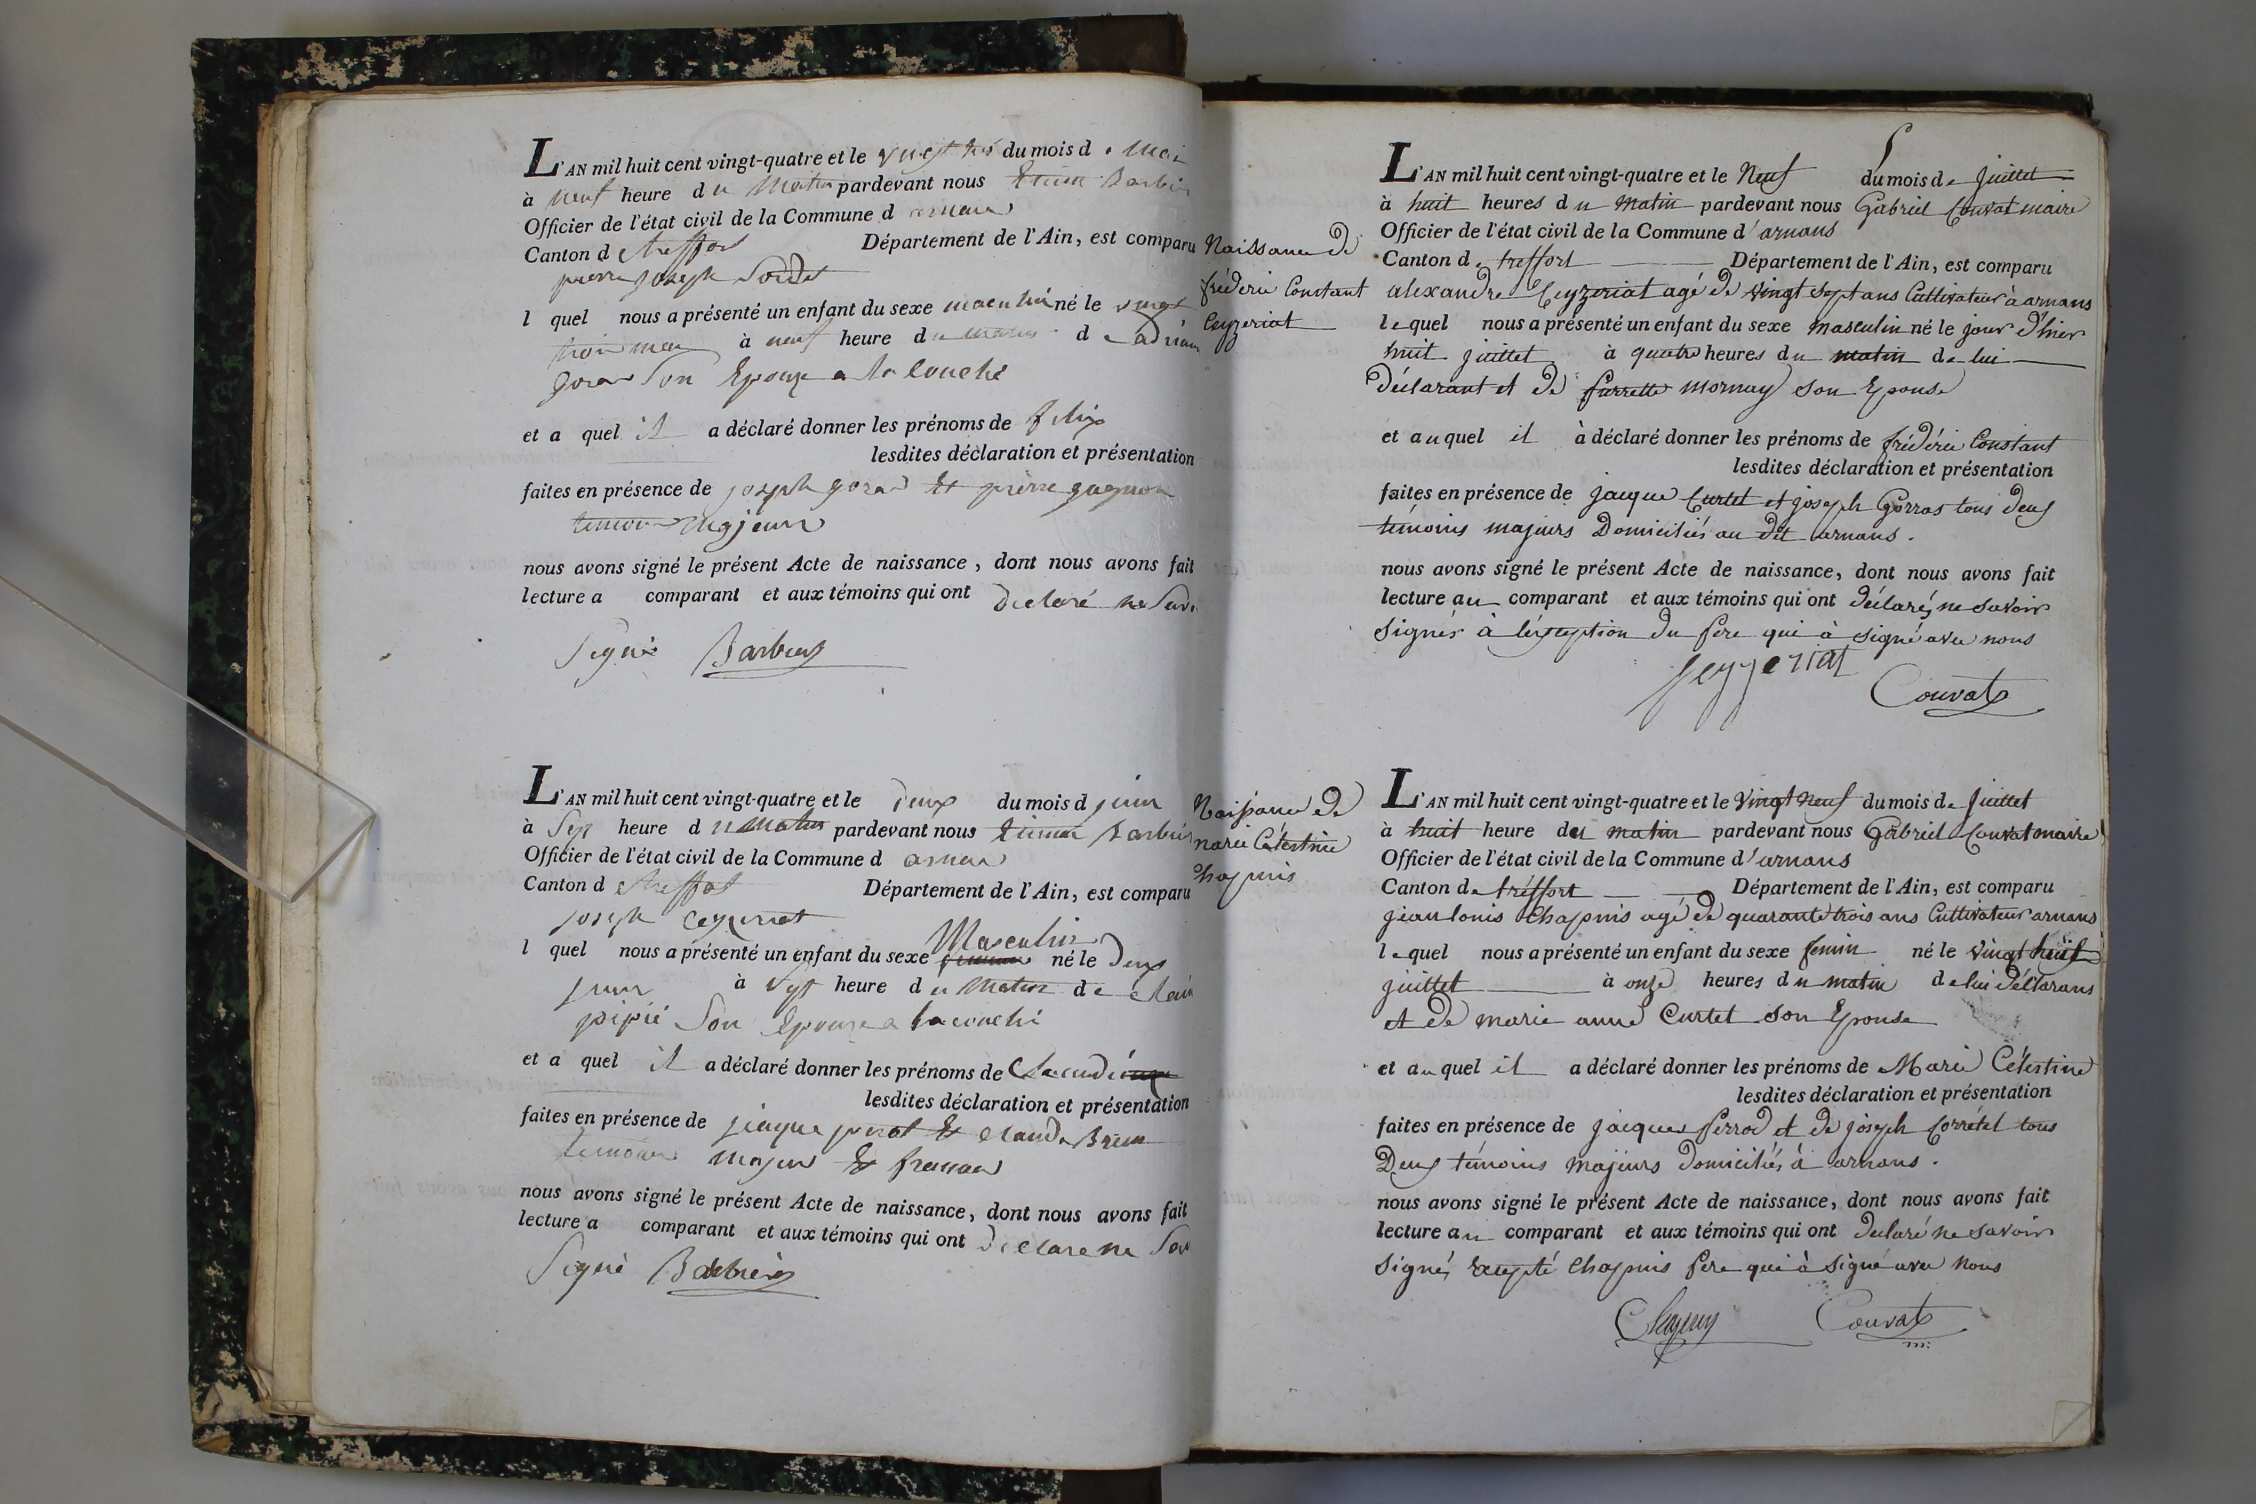 L'AN mil huit cent vingt-quatre et le vingt trois du mois d e Mai
à neuf heure d u Matin pardevant nous Barbier
Officier de l'état civil de la Commune d arnans
Canton d treffort Département de l'Ain, est comparu
pierre joseph
l quel nous a présenté un enfant du sexe masculin né le vingt
trois mai à neuf heure d u matin d e
son Epouze a la couche
et a quel il a déclaré donner les prénoms de felix
lesdites déclaration et présentation
faites en présence de joseph goras Et pierre
temoins majeurs
nous avons signé le présent Acte de naissance, dont nous avons fait
lecture a comparant et aux témoins qui ont declaré ne Savoir
Signé Barbier
L'AN mil huit cent vingt-quatre et le deux du mois d juin
à Sept heure d u Matin pardevant nous Barbier
Officier de l'état civil de la Commune d arnans
Canton d treffort Département de l'Ain, est comparu
joseph ceyzeriat
Masculin
l quel nous a présenté un enfant du sexe né le Deux
juin à Sept heure d u Matin d e
pipié Son Epouze a la couche
et a quel il a déclaré donner les prénoms de
lesdites déclaration et présentation
faites en présence de jaque perrot Et claude Brun
temoins majeur Et
nous avons signé le présent Acte de naissance, dont nous avons fait
lecture a comparant et aux témoins qui ont declare ne Sav
Signé Barbier
Naissance de
frédéric Constant
Ceyzeriat
L'AN mil huit cent vingt-quatre et le Neuf du mois de juillet
à huit heures d u matin pardevant nous Gabriel Couvat maire
Officier de l'état civil de la Commune d'arnans
Canton de treffort Département de l'Ain, est comparu
alexandre Ceyzeriat agé de vingt sept ans Cultivateur à arnans
lequel nous a présenté un enfant du sexe masculin né le jour d'hier
huit juillet à quatre heures du matin de lui
déclarant et de pierrette mornay son Epouse
et auquel il à déclaré donner les prénoms de frédéric Constant
lesdites déclaration et présentation
faites en présence de jacque Curtet et joseph Gorras tous deux
témoins majeurs Domiciliés au dit arnans.
nous avons signé le présent Acte de naissance, dont nous avons fait
lecture au comparant et aux témoins qui ont déclarés ne savoir
signés à l'éxception du pere qui à signé avec nous
Ceyzeriat Couvat
Naissance de
marie Célestine
Chapuis
L'AN mil huit cent vingt-quatre et le vingt neuf du mois de juillet
à huit heure du matin pardevant nous Gabriel Couvat maire
Officier de l'état civil de la Commune d'arnans
Canton de tréffort Département de l'Ain, est comparu
jean louis Chapuis agé de quarante trois ans Cultivateur arnans
lequel nous a présenté un enfant du sexe femin né le vingt huit
juillet à onze heures du matin de lui déclarans
et de marie anne Curtet son Epouse
et auquel il a déclaré donner les prénoms de Marie Célestine
lesdites déclaration et présentation
faites en présence de jacques perrod et de joseph Corrétel tous
Deux témoins majeurs domiciliés à arnans.
nous avons signé le présent Acte de naissance, dont nous avons fait
lecture au comparant et aux témoins qui ont declaré ne savoir
signés excepté Chapuis pere qui à signé avec nous
Chapuis Couvat